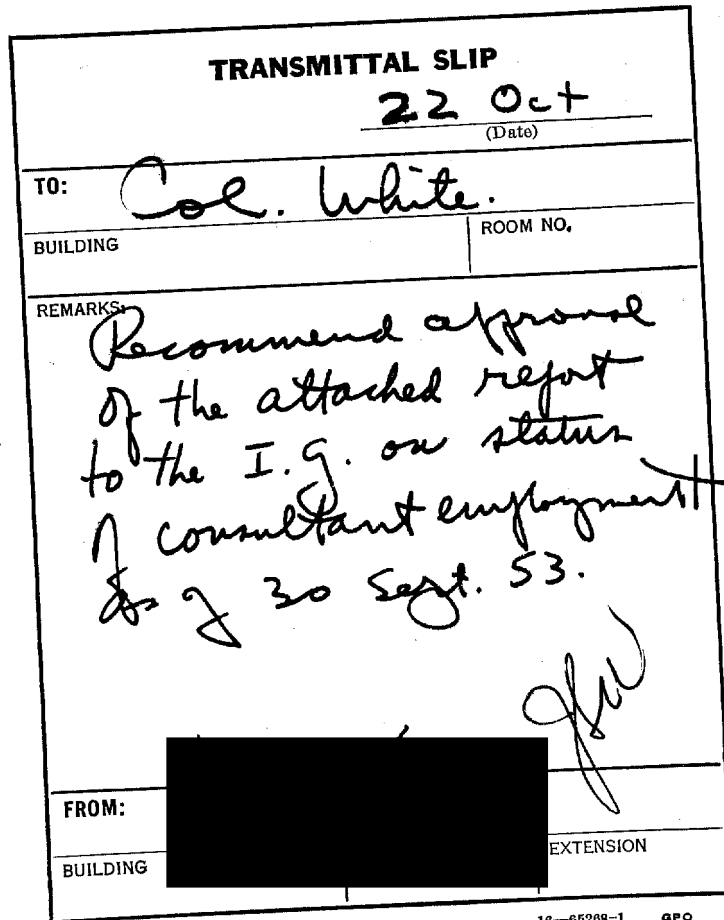 TRANSMITTAL SLIP
22 Oct
(Date)
TO: Col. White.
BUILDING
ROOM NO.
REMARKS:
Recommend approval
of the attached report
to the I.G. on status
of consultant employment
as of 30 Sept. 53.
FROM:
BUILDING
EXTENSION
16—65268-1 GPO